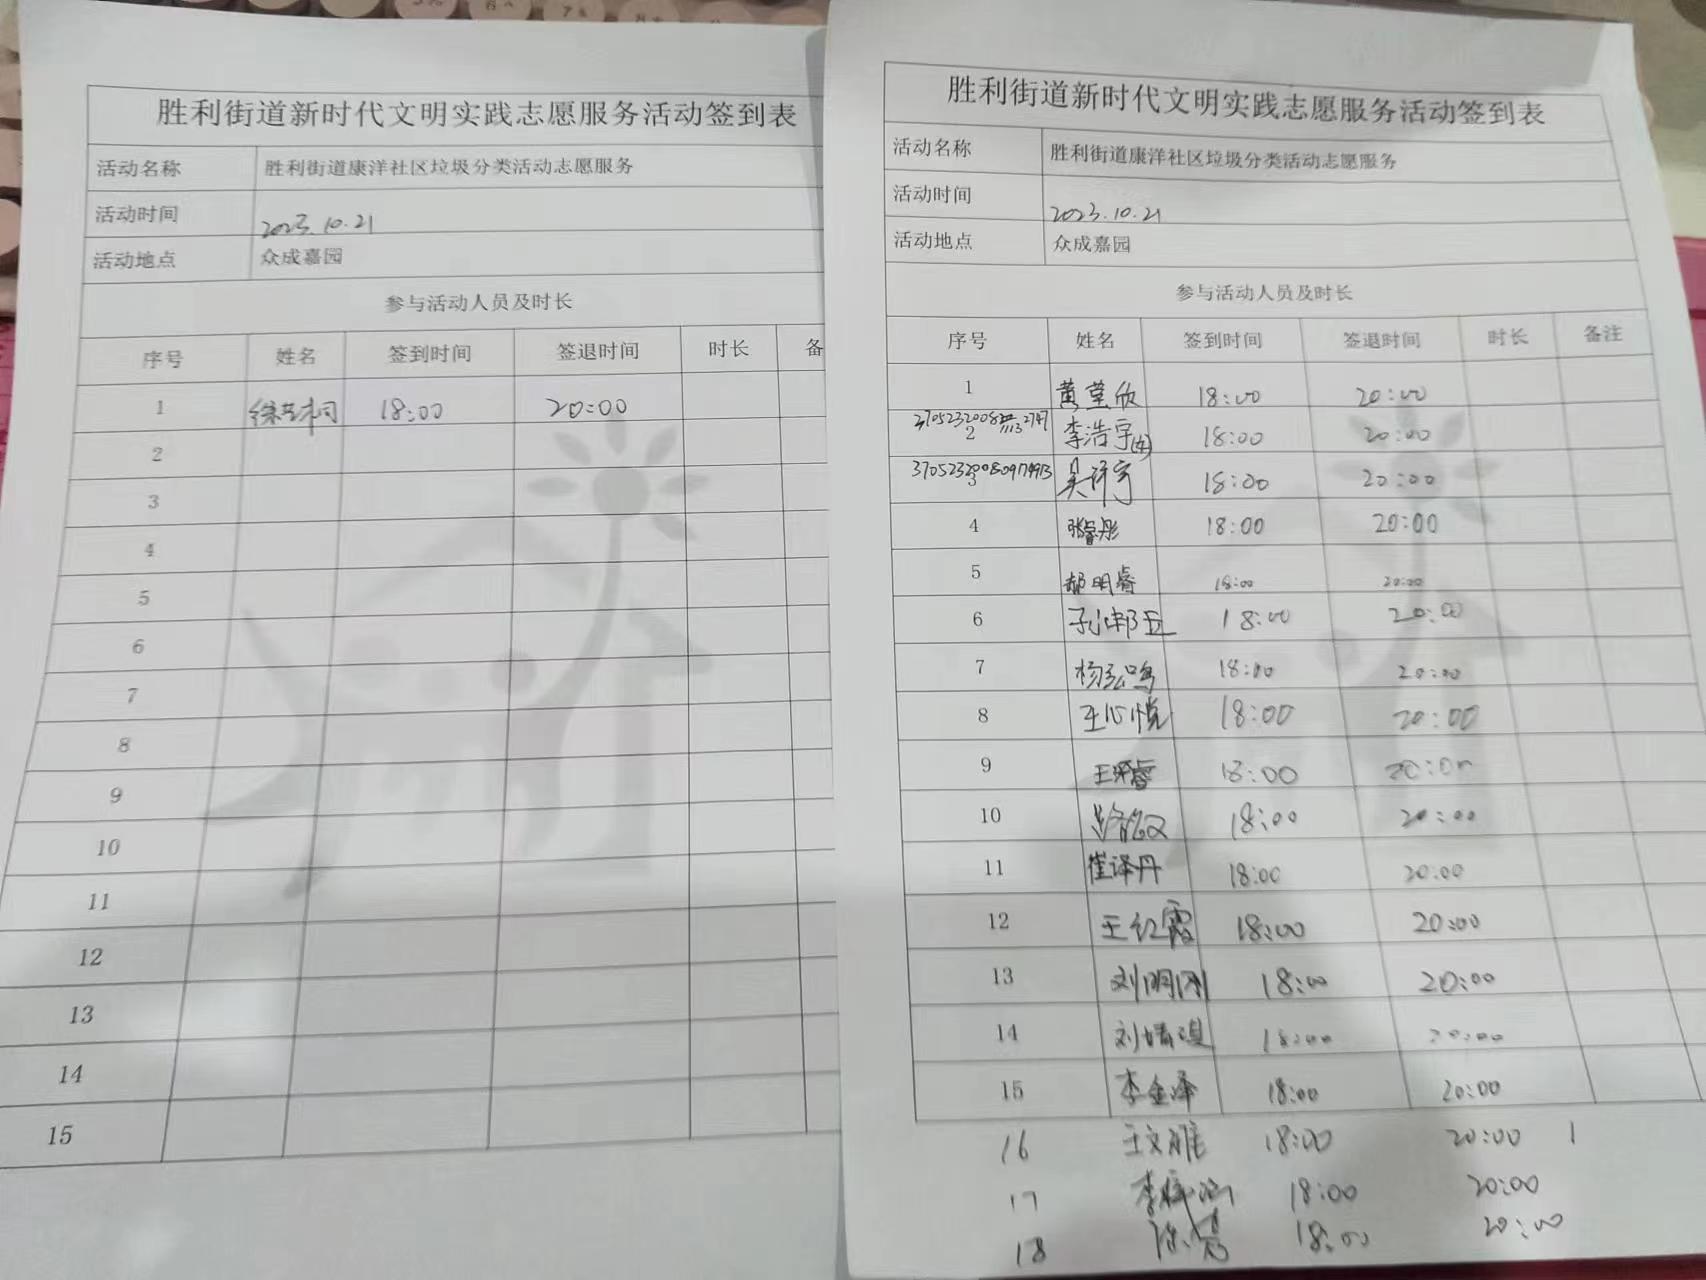 胜利街道新时代文明实践志愿服务活动签到表
活动名称 胜利街道康洋社区垃圾分类活动志愿服务
活动时间 2023.10.21
活动地点 众成嘉园
参与活动人员及时长
序号 姓名 签到时间 签退时间 时长 备
1 18:00 20:00
2
3
4
5
6
7
8
9
10
11
12
13
14
15
胜利街道新时代文明实践志愿服务活动签到表
活动名称 胜利街道康洋社区垃圾分类活动志愿服务
活动时间 2023.10.21
活动地点 众成嘉园
参与活动人员及时长
序号 姓名 签到时间 签退时间 时长 备注
1 黄莹欣 18:00 20:00
2 李浩宇(女) 18:00 20:00
3 18:00 20:00
4 张睿彤 18:00 20:00
5 郝明睿 18:00 20:00
6 18:00 20:00
7 杨弘鸣 18:00 20:00
8 王心悦 18:00 20:00
9 18:00 20:00
10 18:00 20:00
11 崔译丹 18:00 20:00
12 王红霞 18:00 20:00
13 刘明刚 18:00 20:00
14 18:00 20:00
15 李金泽 18:00 20:00
16 王文雕 18:00 20:00
17 18:00 20:00
18 18:00 20:00